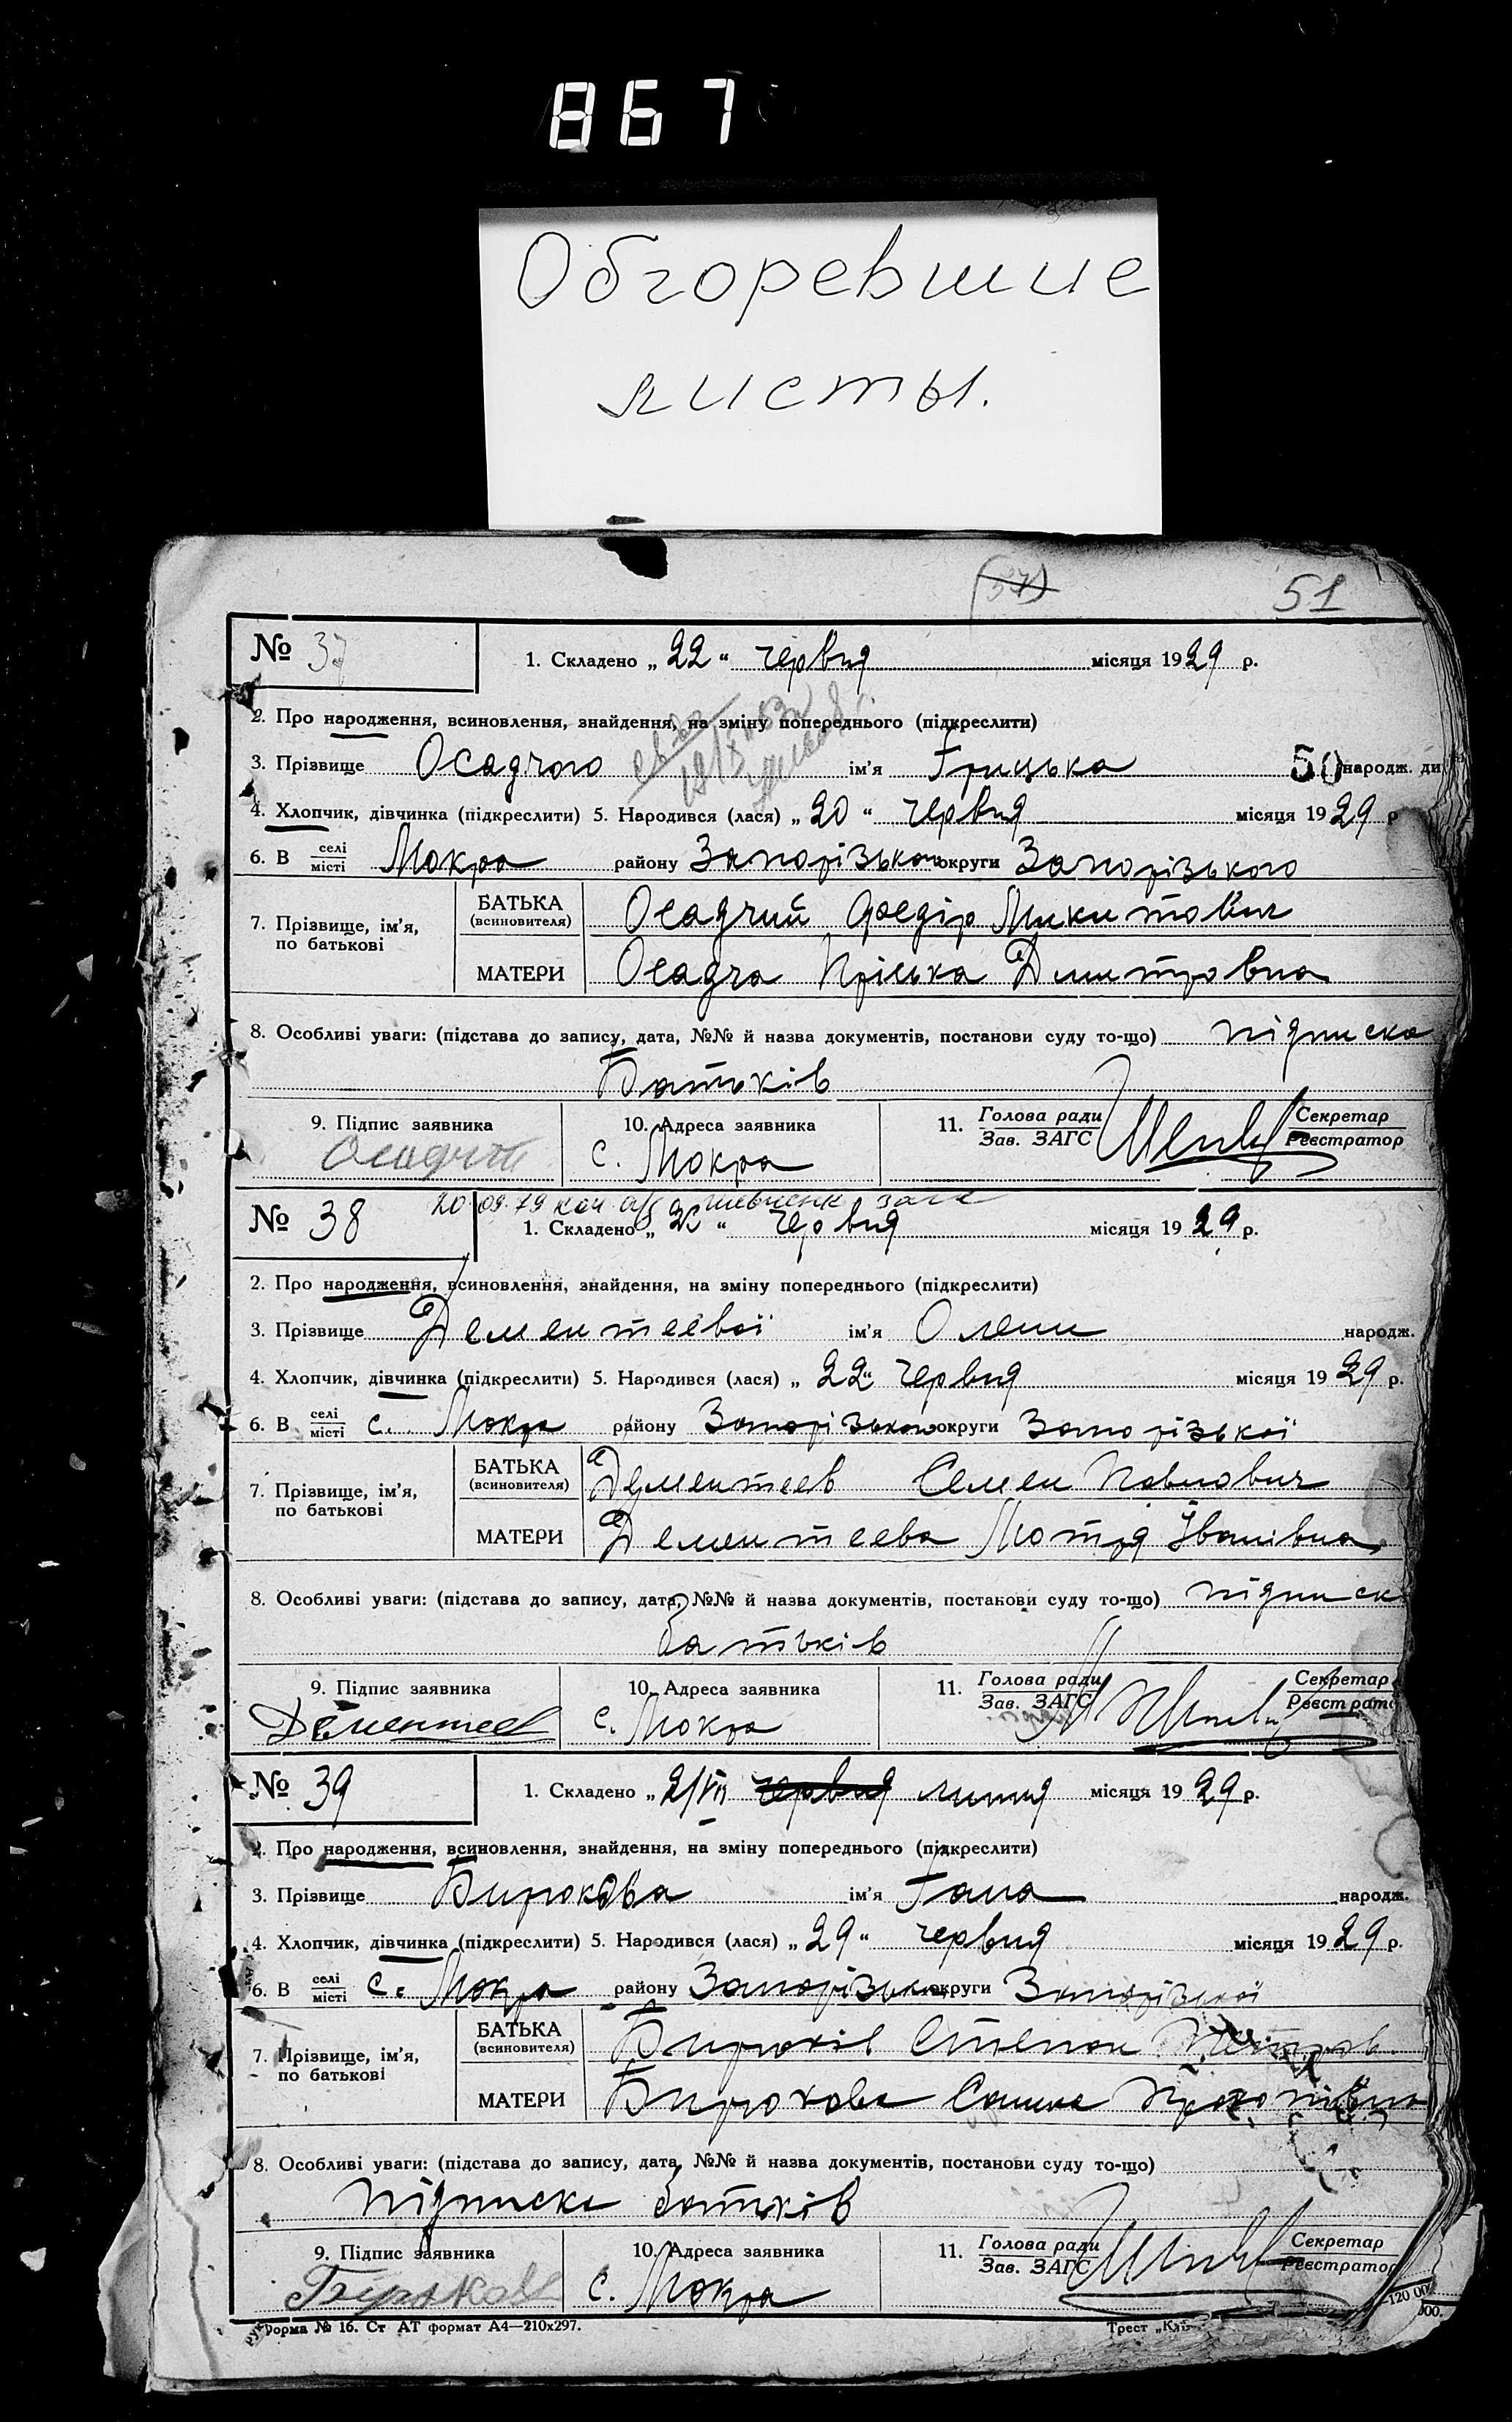 867
Обгоревшие
листы.
(37) 51
№ 37 1. Складено „22“ червня місяця 1929 р.
2. Про народження, всиновлення, знайдення, на зміну попереднього (підкреслити)
3. Прізвище Осадчого ім'я Грицька 50 народж. ди
4. Хлопчик, дівчинка (підкреслити) 5. Народився (лася) „20“ червня місяця 1929 р
6. В селі місті Мокра району Запорізького округи Запорізького
7. Прізвище, ім'я, по батькові БАТЬКА (всиновителя) Осадчий Федір Микитович
МАТЕРИ Осадча Пріська Дмитровна
8. Особливі уваги: (підстава до запису, дата, №№ й назва документів, постанови суду то-що) підписка
Батьків
9. Підпис заявника 10. Адреса заявника 11. Голова ради Зав. ЗАГС Секретар Реєстратор
Осадчий с. Мокра
20.09.79
№ 38 1. Складено „ “ червня місяця 1929 р.
2. Про народження, всиновлення, знайдення, на зміну попереднього (підкреслити)
3. Прізвище Дементеєвої ім'я Олени народж.
4. Хлопчик, дівчинка (підкреслити) 5. Народився (лася) „22“ червня місяця 1929 р.
6. В селі місті с. Мокра району Запорізького округи Запорізької
7. Прізвище, ім'я, по батькові БАТЬКА (всиновителя) Дементеев Семен Павлович
МАТЕРИ Дементеева Мотря Іванівна
8. Особливі уваги: (підстава до запису, дата, №№ й назва документів, постанови суду то-що) підписк
батьків
9. Підпис заявника 10. Адреса заявника 11. Голова ради Зав. ЗАГС Секретар Реєстрато
Дементеев с. Мокра
№ 39 1. Складено „2/VII червня липня місяця 1929 р.
2. Про народження, всиновлення, знайдення, на зміну попереднього (підкреслити)
3. Прізвище Бирюкова ім'я Гана народж.
4. Хлопчик, дівчинка (підкреслити) 5. Народився (лася) „29“ червня місяця 1929 р.
6. В селі місті с. Мокра району Запорізького округи Запорізької
7. Прізвище, ім'я, по батькові БАТЬКА (всиновителя) Бирюків Степан Петров
МАТЕРИ Бирюкова Прокопівна
8. Особливі уваги: (підстава до запису, дата, №№ й назва документів, постанови суду то-що)
підписка батьків
9. Підпис заявника 10. Адреса заявника 11. Голова ради Зав. ЗАГС Секретар Реєстратор
Бирюков с. Мокра
Форма № 16. Ст АТ формат А4—210х297. Трест 120 00